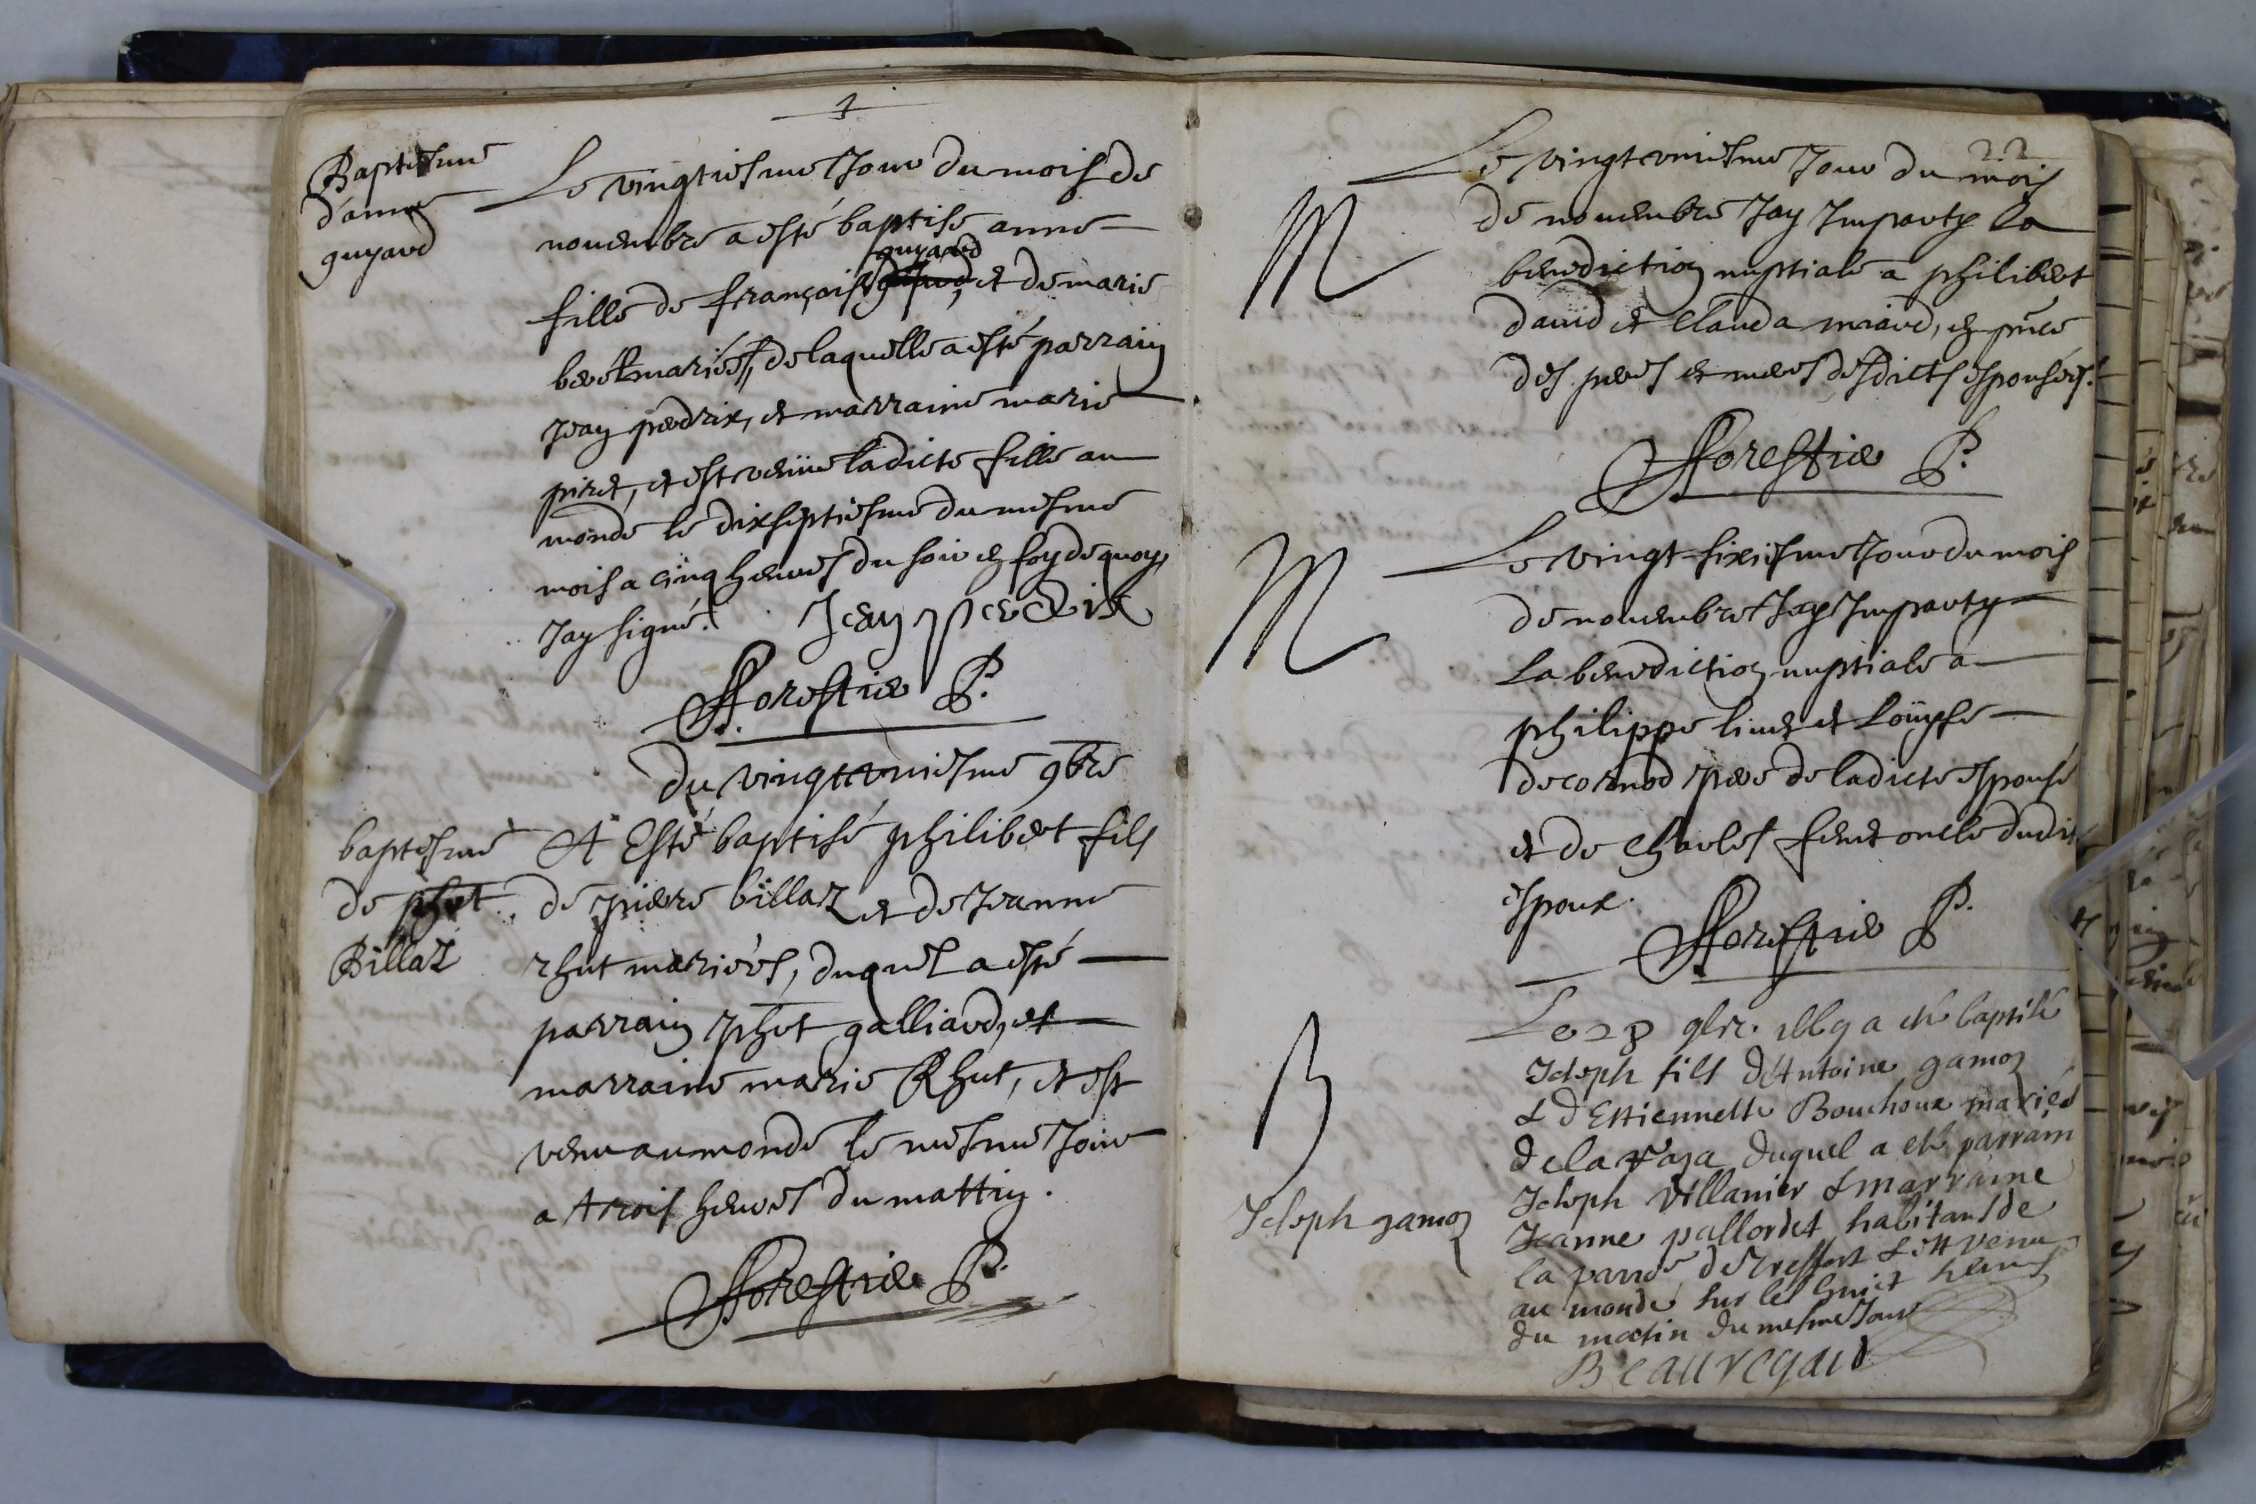 Baptesme
d'anne
guyard
Le vingtiesme Jour du mois de
novembre a esté baptise anne
guyard
fille de françois et de marie
mariés, de laquelle a esté parrain
Jean perdrix, et marraine marie
piret, et est venüe ladicte fille au
monde le dixseptiesme du mesme
mois a cinq heures du soir en foy de quoy
Jay signé. Jean perdrix
Forestier P.
du vingt uniesme 9bre
baptesme
de phet
Billaz
A Esté baptisé philibert fils
de pierre billaz et de Jeanne
rhut mariés, duquel a esté
parrain phet galliard, et
marraine marie Rhut, et est
venu au monde le mesme Jour
a trois heures du mattin.
Forestier P.
22
M
Le vingt uniesme Jour du mois
de novembre Jay Imparty la
benediction nuptiale a philibert
david et Clauda miard, en pnce
des peres et meres desdicts espousés.
Forestier P.
M
Le vingt-sixiesme Jour du mois
de novembre Jay Imparty
la benediction nuptiale a
philippe et Loüyse
decornod pere de ladicte espouse
et de Charles oncle dudit
espoux.
Forestier P.
B
Joseph gamon
Le 28 9bre. illy a eté baptisé
Joseph fils d'Antoine gamon
& d'Estiennette Bouchoux mariés
de la duquel a eté parrain
Joseph Villanier & marraine
Jeanne pallordet habitans de
la parrosse de Treffort & est venu
au monde sur les huict heures
du matin du mesme Jour
Beauregard